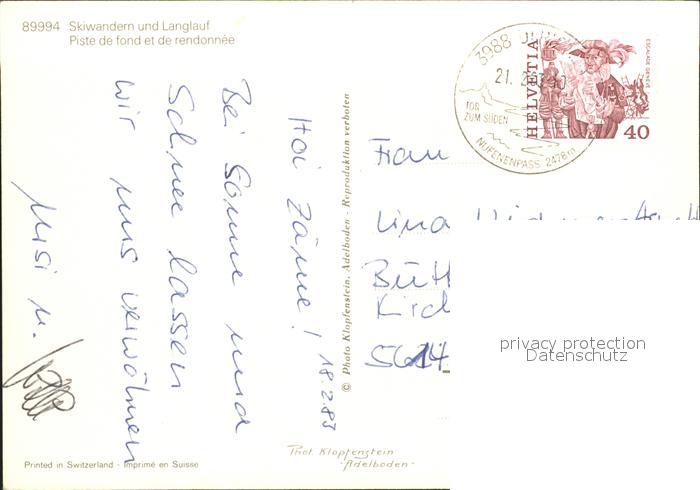 89994 Skiwandern und Langlauf
Piste de fond et de rendonnée
Hoi Zäme! 18.2.83
Bei Sonne und
Schnee lassen
wir uns verwöhnen
Misi u.
© Photo Klopfenstein, Adelboden - Reproduktion verboten
3988
21.
TOR
ZUM SÜDEN
NUFENENPASS 2478m
HELVETIA
ESCALADE GENÈVE
40
Frau
Lina
Bütt
Kirch
5614
privacy protection
Datenschutz
Phot. Klopfenstein
-Adelboden-
Printed in Switzerland - Imprimé en Suisse